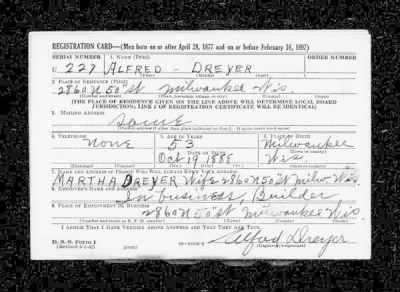 REGISTRATION CARD—(Men born on or after April 28, 1877 and on or before February 16, 1897)
SERIAL NUMBER 1. NAME (Print) ORDER NUMBER
U 227 ALFRED - DREYER
(First) (Middle) (Last)
2. PLACE OF RESIDENCE (Print)
2860 N 50" st Milwaukee Wis.
(Number and street) (Town, township, village, or city) (County) (State)
[THE PLACE OF RESIDENCE GIVEN ON THE LINE ABOVE WILL DETERMINE LOCAL BOARD
JURISDICTION; LINE 2 OF REGISTRATION CERTIFICATE WILL BE IDENTICAL]
3. MAILING ADDRESS
Same
[Mailing address if other than place indicated on line 2. If same insert word same]
4. TELEPHONE 5. AGE IN YEARS 6. PLACE OF BIRTH
None 53 Milwaukee
DATE OF BIRTH (Town or county)
Oct 19 1888 Wis
(Mo.) (Day) (Yr.) (State or country)
7. NAME AND ADDRESS OF PERSON WHO WILL ALWAYS KNOW YOUR ADDRESS
MARTHA DREYER Wife 2860 N 50" st Milw. Wis.
8. EMPLOYER'S NAME AND ADDRESS
In business, Builder
9. PLACE OF EMPLOYMENT OR BUSINESS
2860 N 50" st Milwaukee Wis.
(Number and street or R. F. D. number) (Town) (County) (State)
I AFFIRM THAT I HAVE VERIFIED ABOVE ANSWERS AND THAT THEY ARE TRUE.
D. S. S. Form 1
(Revised 4-1-42) (over)
Alfred Dreyer
(Registrant's signature)